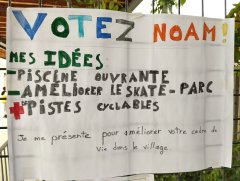 VOTEZ NOAM!
MES IDÉES:
-PISCINE OUVRANTE
-AMÉLIORER LE SKATE-PARC
+ DE PISTES CYCLABLES
Je me présente pour améliorer votre cadre de
vie dans le village.